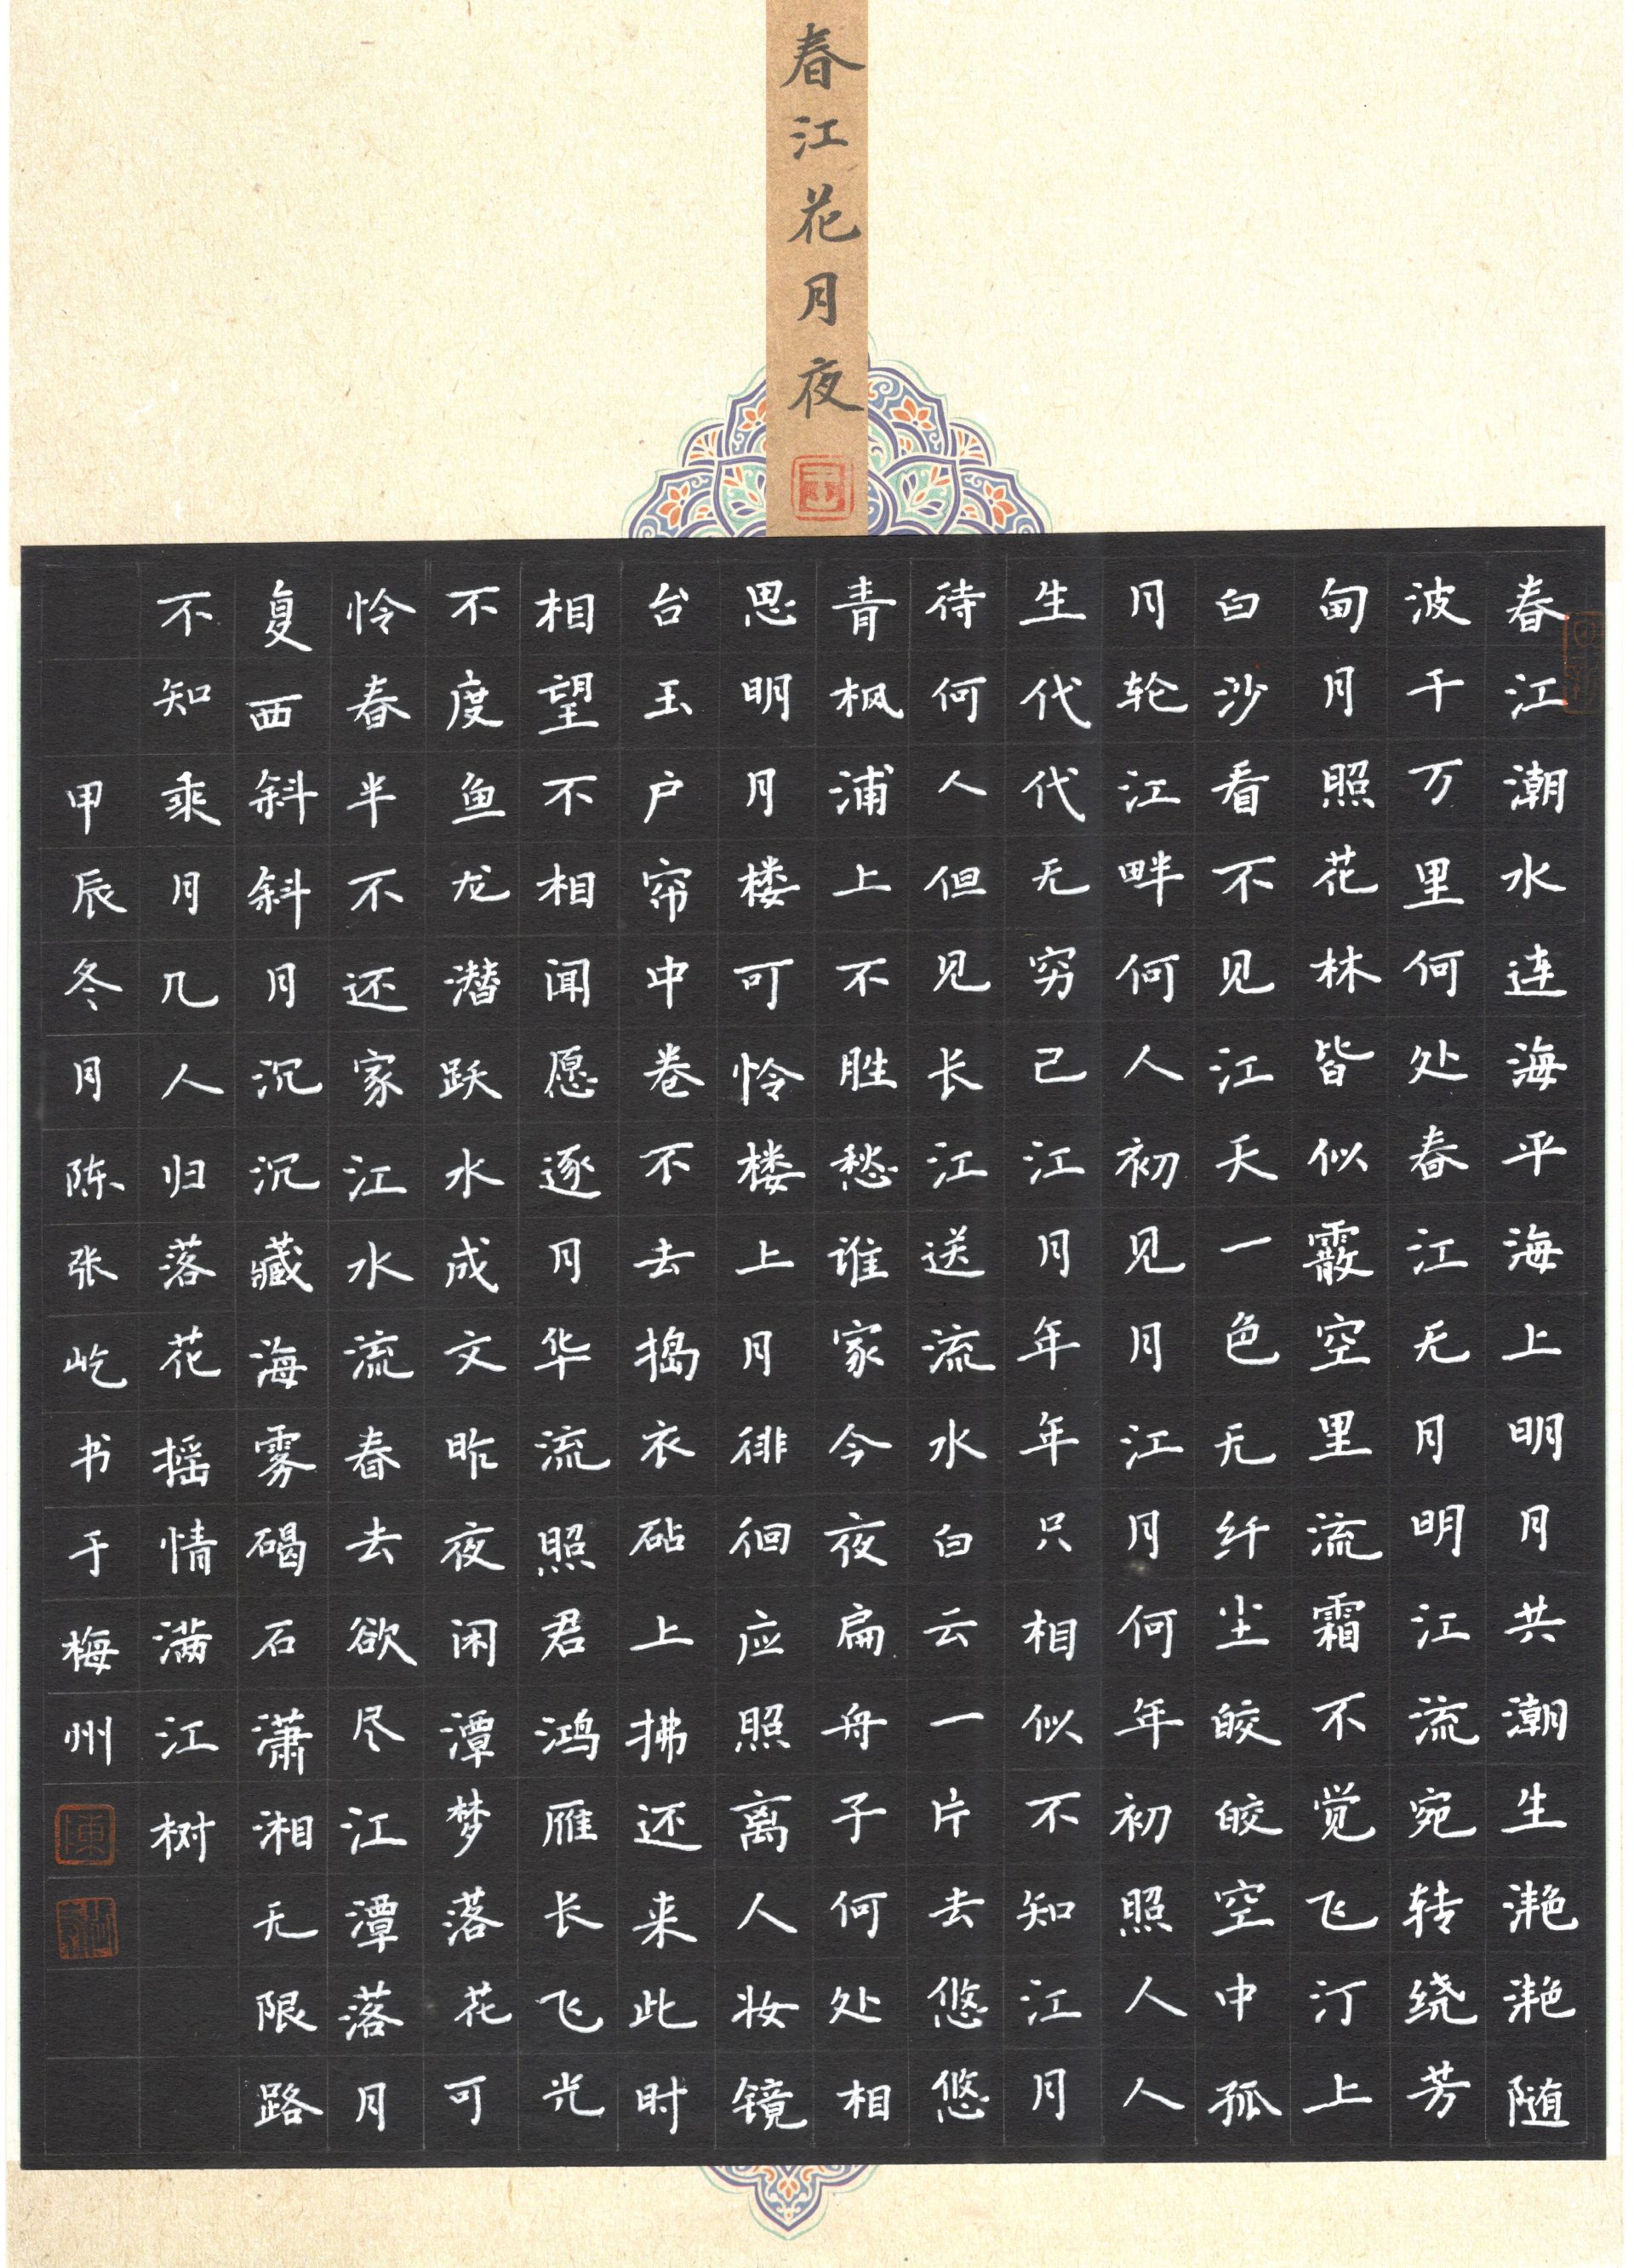 春江花月夜
春江潮水连海平海上明月共潮生滟滟随
波千万里何处春江无月明江流宛转绕芳
甸月照花林皆似霰空里流霜不觉飞汀上
白沙看不见江天一色无纤尘皎皎空中孤
月轮江畔何人初见月江月何年初照人人
生代代无穷己江月年年只相似不知江月
待何人但见长江送流水白云一片去悠悠
青枫浦上不胜愁谁家今夜扁舟子何处相
思明月楼可怜楼上月徘徊应照离人妆镜
台玉户帘中卷不去捣衣砧上拂还来此时
相望不相闻愿逐月华流照君鸿雁长飞光
不度鱼龙潜跃水成文昨夜闲潭梦落花可
怜春半不还家江水流春去欲尽江潭落月
复西斜斜月沉沉藏海雾碣石潇湘无限路
不知乘月几人归落花摇情满江树
甲辰冬月陈张屹书于梅州
陳